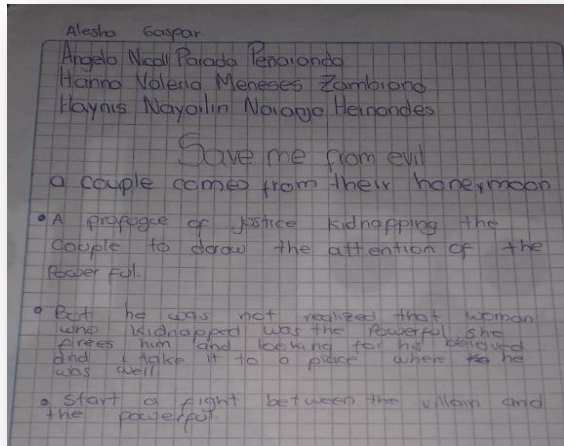 Alesha Gaspar.
Angelo Nicoll Parada Penaranda
Hanna Valeria Meneses Zambrano
Haynis Nayarlin Naranjo Hernandes
Save me from evil
a couple comes from their honeymoon
• A propogue of jostice kidnapping the
couple to dorow the attention of the
Power ful.
• But he was not realized that woman
who kidnapped was the Powerful she
frees him and looking for his beloved
and take it to a place where he
was well
• Start a fight between the villain and
the powerful.